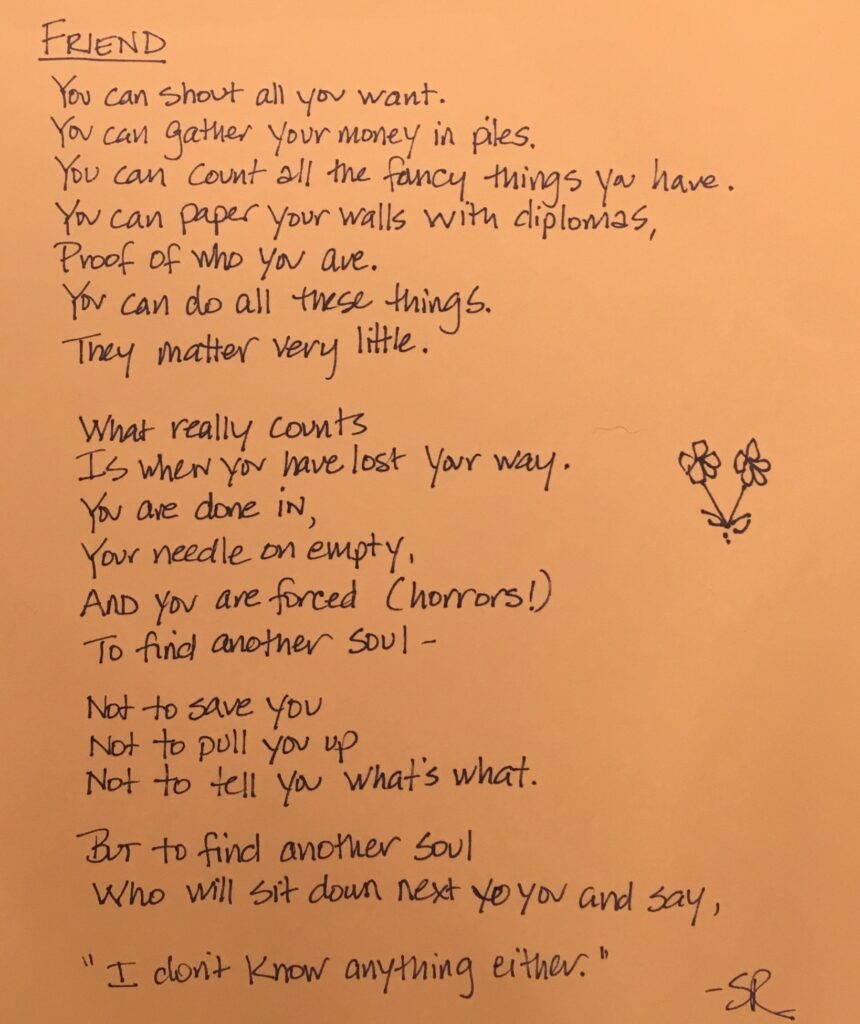 FRIEND
You can shout all you want.
You can gather your money in piles.
You can count all the fancy things you have.
You can paper your walls with diplomas,
Proof of who you are.
You can do all these things.
They matter very little.
What really counts
Is when you have lost your way.
You are done in,
Your needle on empty,
And you are forced (horrors!)
To find another soul –
Not to save you
Not to pull you up
Not to tell you what's what.
But to find another soul
Who will sit down next yo you and say,
"I don't know anything either."
-SR